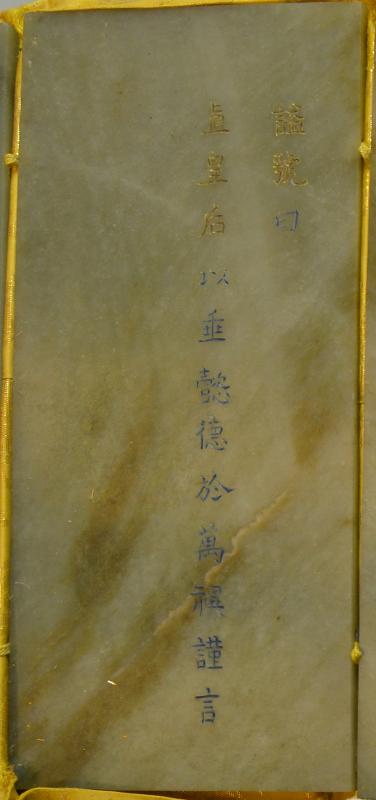 諡號曰
貞皇后以垂懿德於萬禩謹言